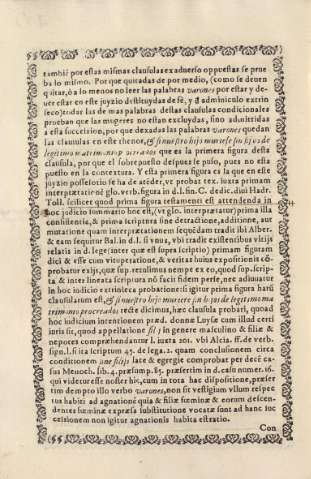 tambiẽ por estas mismas clausulas ex aduerso oppuestas se prue
ba lo mismo. Por que quitadas de por medio, (como se deuen
quitar, ò a lo menos no leer las palabras varones por estar y de-
uer estar en este juyzio destituydas de fè, y q̃ adminiculo extrin
seco) todas las de mas palabras destas clausulas condicionales
prueban que las mugeres no estan excluydas, sino admitidas
a esta succession, por que dexadas las palabras varones quedan
las clausulas en este thenor, & si nuestro hijo muriesse sin hijos de
legitimo matrimonio procreados que es la primera figura desta
clausula, por que el sobrepuesto despues le puso, pues no esta
puesto en la contextura. Y esta primera figura es la que en este
juyzio possessorio se ha de atēder, vt probat tex. iuxta primam
interpretatiõ nē glo. verb. figura in d. l. sin C. de dic. diui Hadr.
Toll. scilicet quod prima figura testamenti est attendenda in
hoc judicio summario hoc est, (vt glo. interprætatur) prima illa
conscissio, & prima inscriptura sine detractione, additione, aut
mutatione quam interpretationem sequēdam tradit ibi Alber.
& eam sequitur Bal. in d. l. si vnus, vbi tradit existentibus vitijs
relatis in d. lege (inter que est supra scriptio) primam figuram
dici & esse cum vituperatione, & veritas huius expositionis cõ-
probatur ex ijs, quæ sup. retulimus nempe ex eo, quod sup. scrip-
ta & inter lineata scriptura nō facit fidem per se, nec adiuuatur
in hoc iudicio extrinseca probatione: si igitur prima figura harũ
clausularum est, & si nuestro hijo muriere sin hijos de legitimo ma
trimonio procreados recte dicimus, hæc clausula probari, quoad
hoc iudicium intentionem præd. donne Luysæ cum illud certi
iuris sit, quod appellatione fil; in genere masculino & filiæ &
nepotes comprehendantur l. iuxta 201. vbi Alcia. ff. de verb.
sign. l. si ita scriptum 45. de lega. 2. quam conclusionem circa
conditionem sine filijs late & egregie comprobat per decẽ ca-
sus Menoch. lib. 4. præsump. 85. præsertim in d. casu numer. 16.
qui videtur esse noster hic, cum in tota hac dispositione, præser
tim dempto illo verbo varones, non sit vestigium vllum respec
tus habiti ad agnationē quia & filiæ fœminæ & eorum descen-
dentes fœminæ expæssa substitutione vocatæ sunt ad hanc suc
cessionem non igitur agnationis habita est ratio.
Con